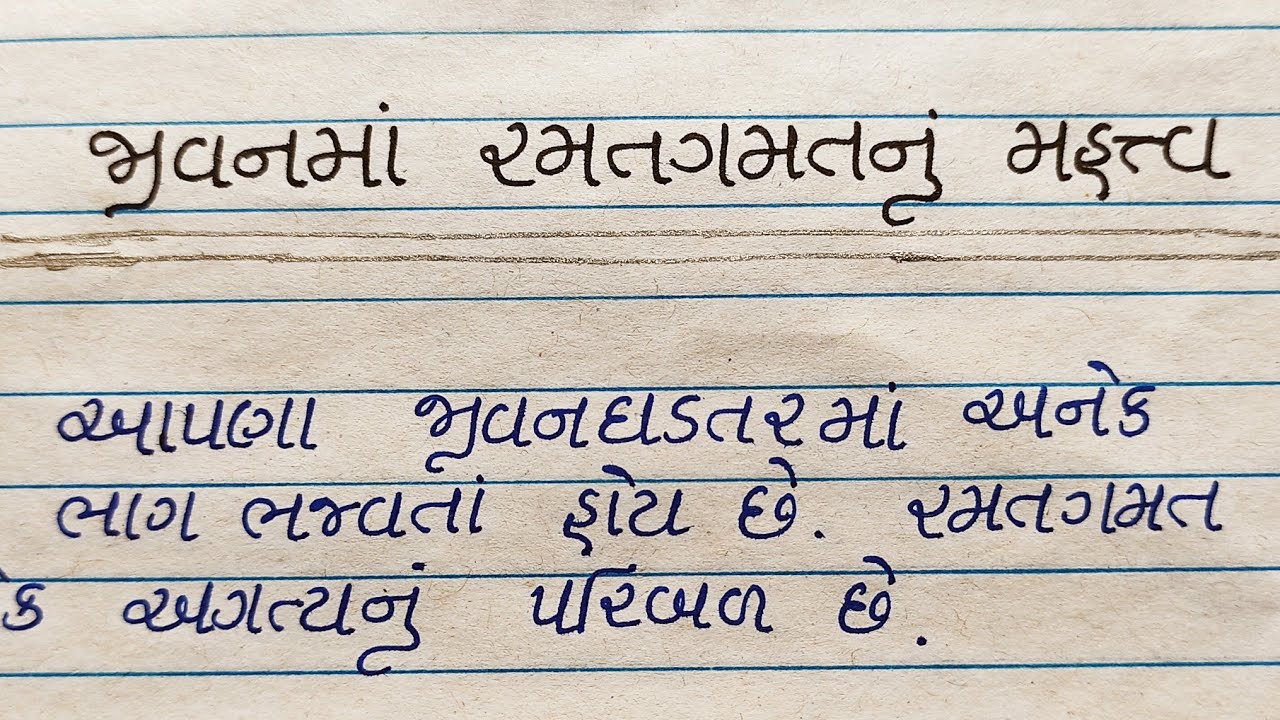 જીવનમાં રમતગમતનું મહત્ત્વ
આપણા જીવનઘડતરમાં અનેક
ભાગ ભજવતાં હોય છે. રમતગમત
ક અગત્યનું પરિબળ છે.